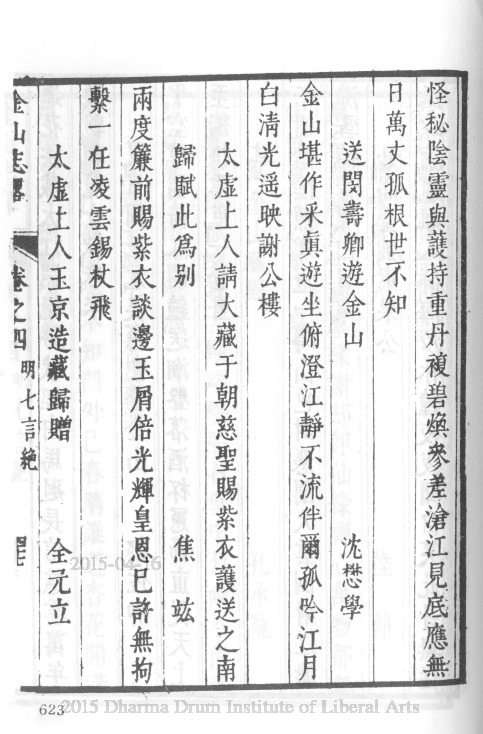 怪秘陰靈與護持重丹複碧煥參差滄江見底應無
日萬丈孤根世不知
送閔壽卿遊金山
沈懋學
金山堪作采真遊坐俯澄江靜不流伴爾孤吟江月
白清光遥映謝公樓
太虛上人請大藏于朝慈聖賜紫衣護送之南
歸賦此為別
焦竑
兩度簾前賜紫衣談邊玉屑倍光輝皇恩已許無拘
繫一任凌雲錫杖飛
太虛上人玉京造藏歸贈
全元立
金山志畧
卷之四
明七言絶
623
2015-04-16
2015 Dharma Drum Institute of Liberal Arts